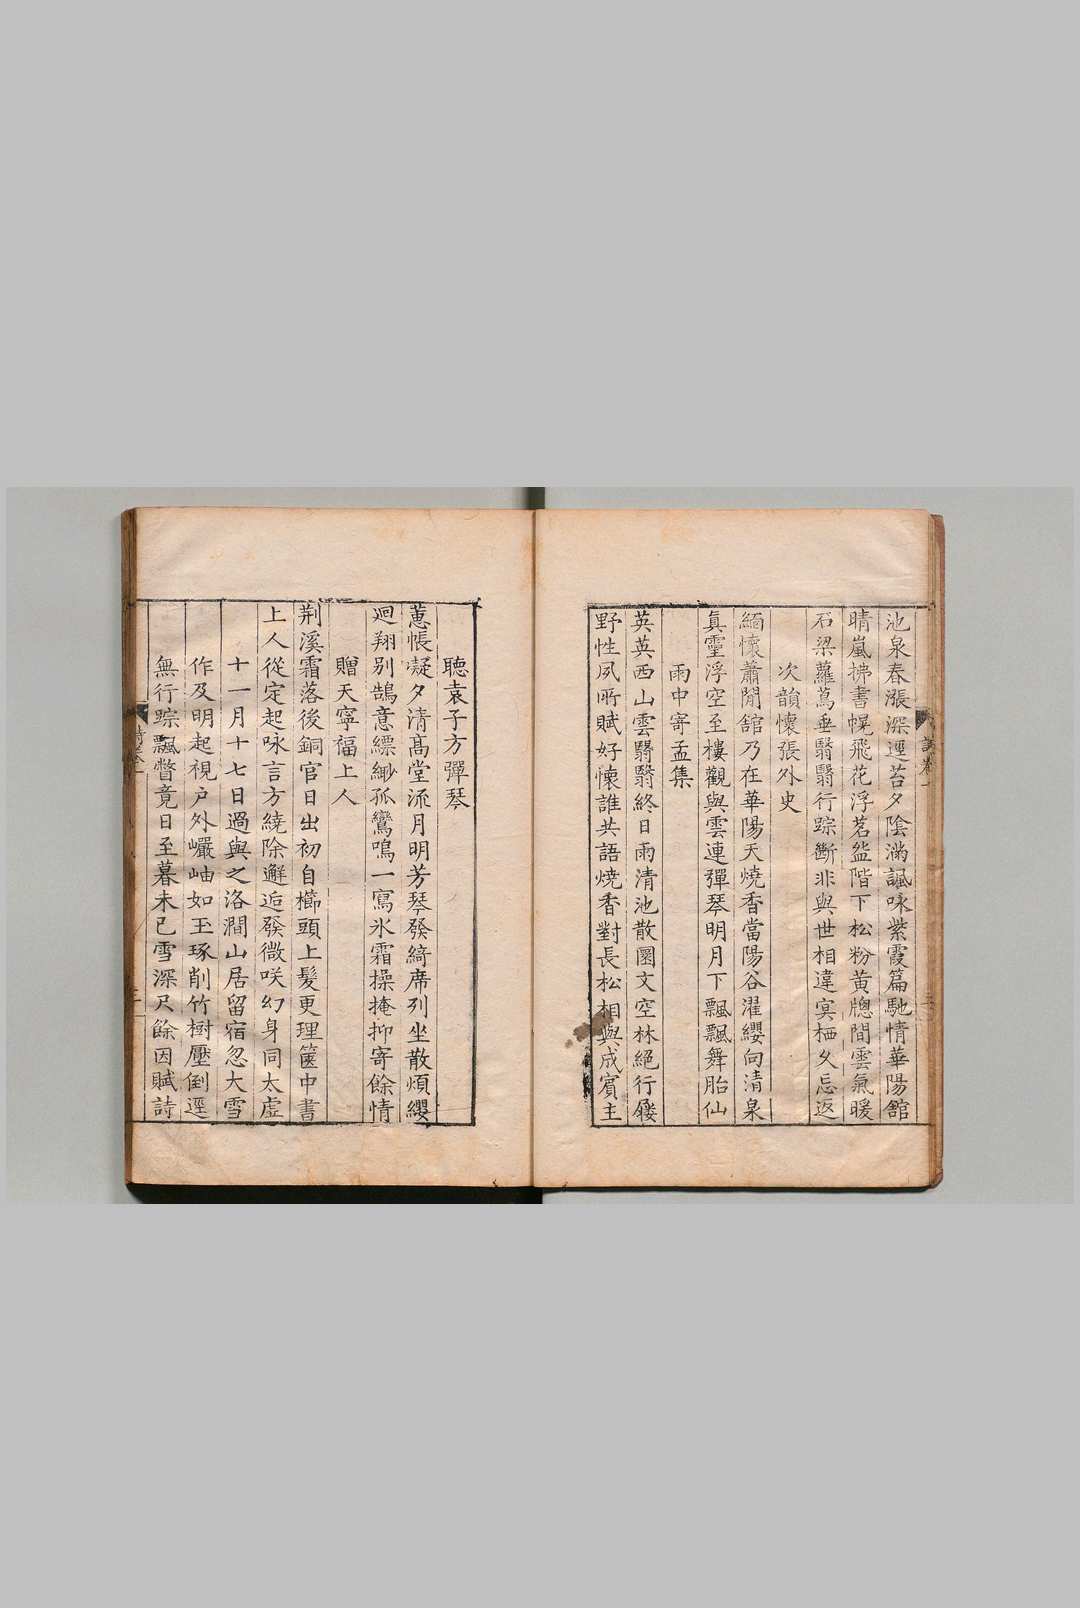 池泉春漲深逕苔夕陰滿諷咏紫霞篇馳情華陽舘
晴嵐拂書幌飛花浮茗盌階下松粉黃牎間雲氣暖
石梁蘿蔦垂翳翳行踪斷非與世相違寞栖久忘返
次韻懷張外史
緬懷蕭閒舘乃在華陽天燒香當陽谷濯纓向清泉
眞靈浮空至樓觀與雲連彈琴明月下飄飄舞胎仙
雨中寄孟集
英英西山雲翳翳終日雨清池散圓文空林絕行屨
野性夙所賦好懷誰共語燒香對長松相與成賓主
詩卷一
三
聽袁子方彈琴
蕙帳凝夕清髙堂流月明芳琴發綺席列坐散煩纓
迴翔别鵠意縹緲孤鸞鳴一寫氷霜操掩抑寄餘情
贈天寧福上人
荆溪霜落後銅官日出初自櫛頭上髮更理篋中書
上人從定起咏言方繞除邂逅發微咲幻身同太虛
十一月十七日過與之洛澗山居留宿忽大雪
作及明起視户外巗岫如玉琢削竹樹壓倒逕
無行踪飄瞥竟日至暮未已雪深尺餘因賦詩